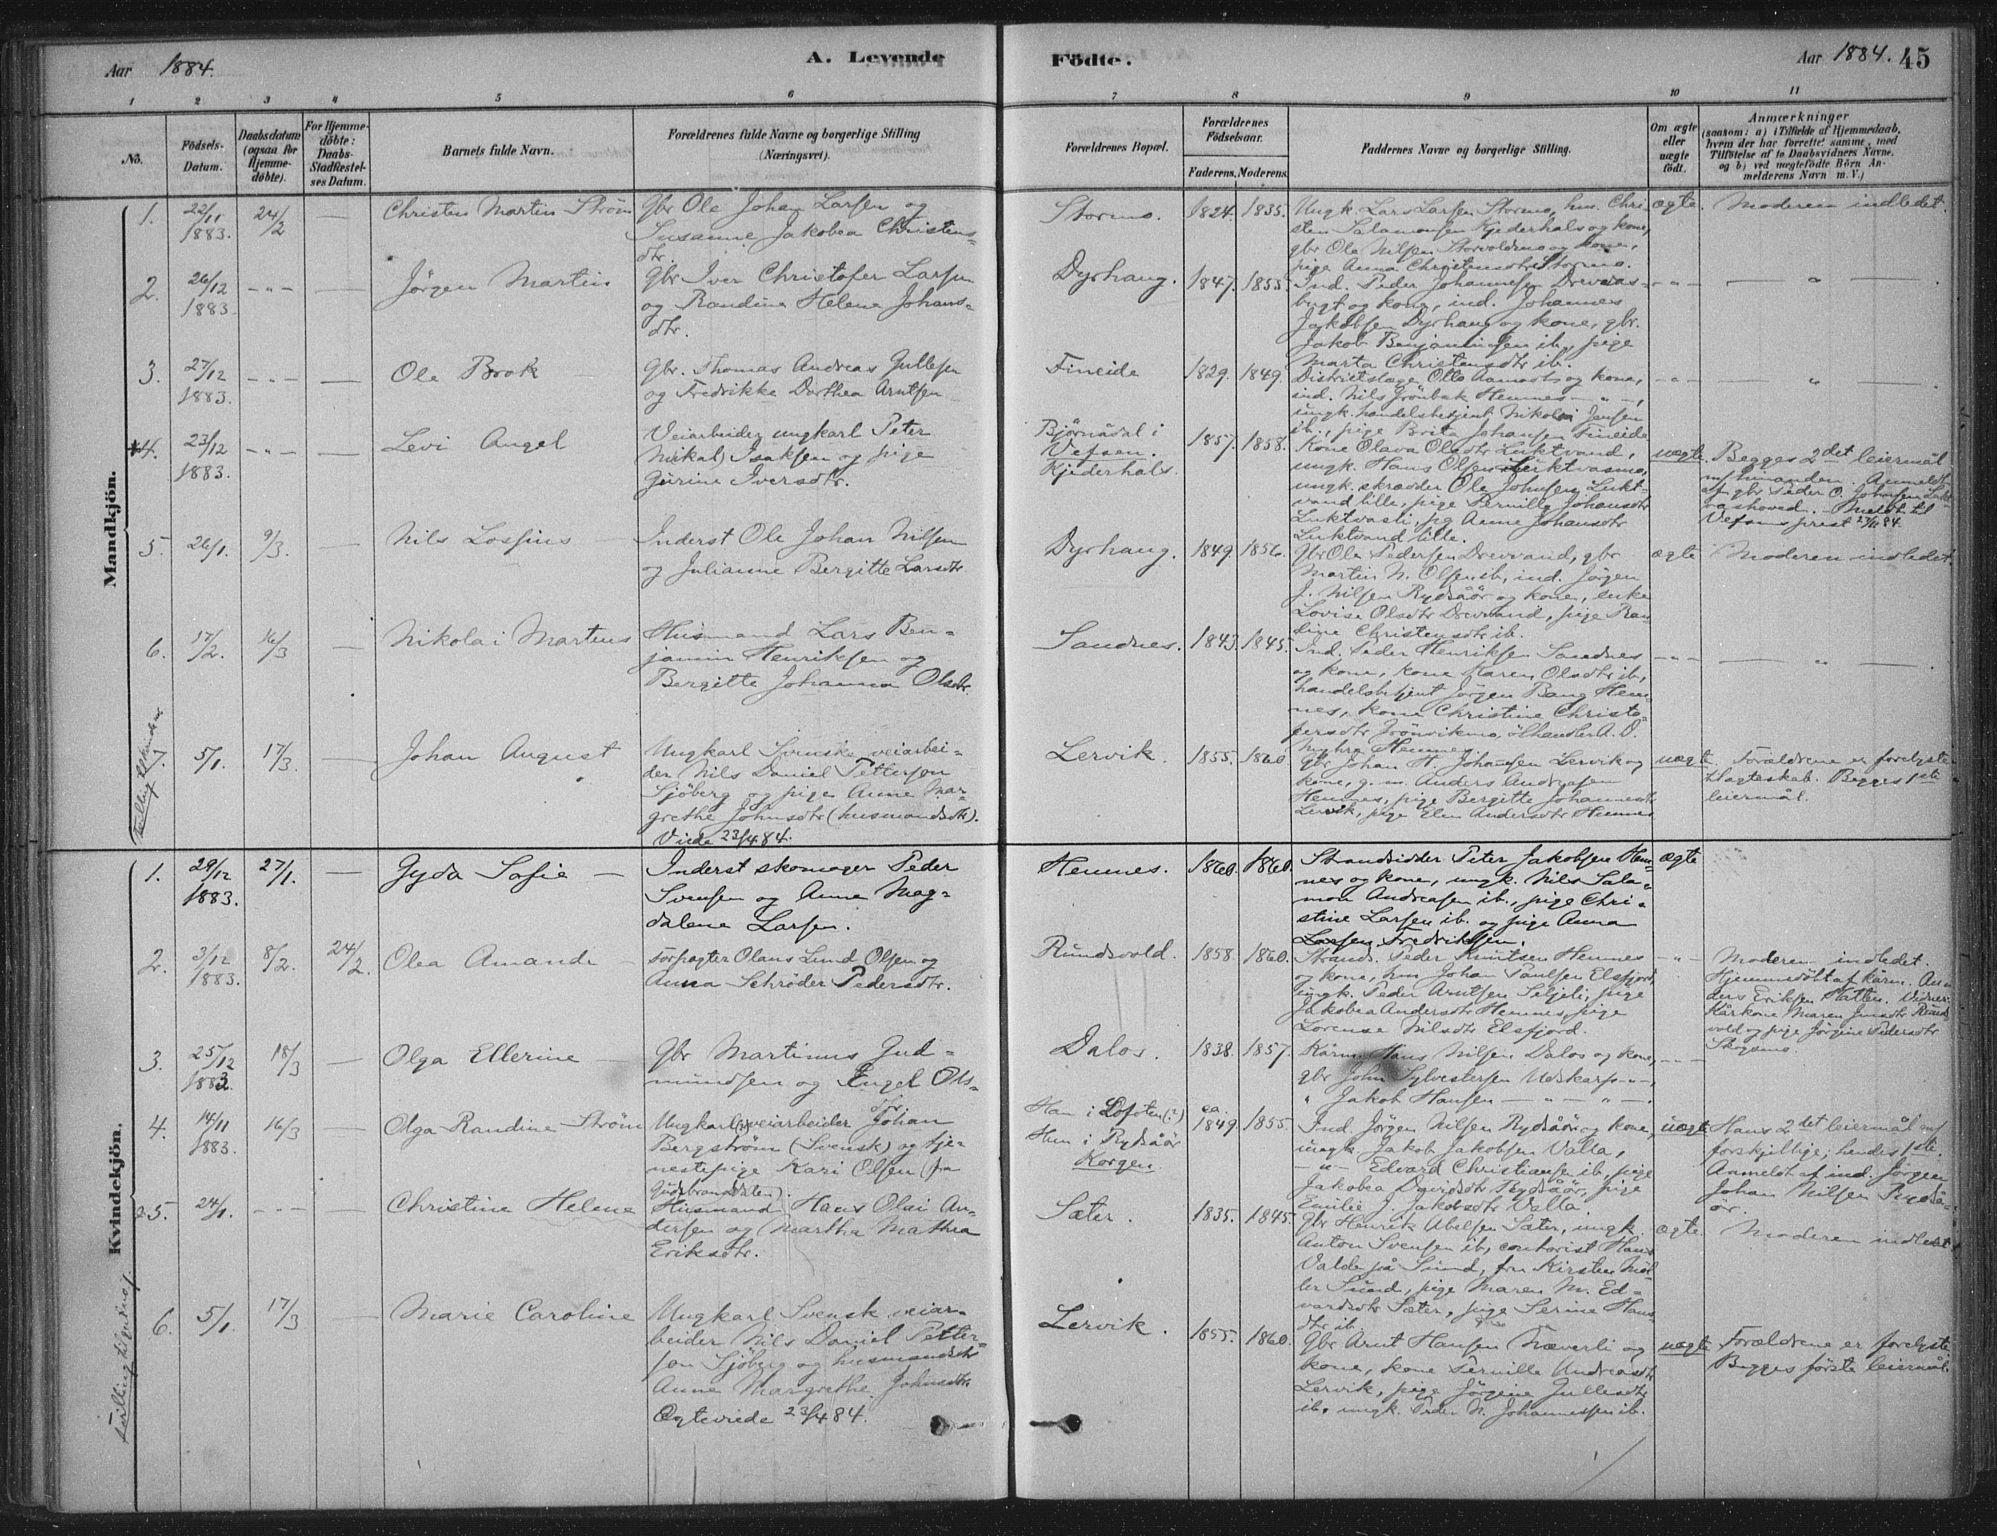 Aar 1884.
A. Levende
Födte.
Aar 1884. 45
1 2 3 4 5 6 7 8 9 10 11
No.
Födsels-Datum.
Daabsdatum (ogsaa for Hjemme-döbte).
For Hjemme-döbte: Daabs-Stadfæstel-ses Datum.
Barnets fulde Navn.
Forældrenes fulde Navne og borgerlige Stilling
(Næringsvei).
Forældrenes Bopæl.
Forældrenes Födselsaar.
Faderens. Moderens.
Faddernes Navne og borgerlige Stilling.
Om ægte eller uægte födt.
Anmærkninger
(saasom: a) i Tilfælde af Hjemmedaab,
hvem der har forrettet samme, med
Tilföielse af to Daabsvidners Navne,
og b) ved uægtefödte Börn An-
melderens Navn m. V.)
Mandkjön.
1. 22/11 1883. 24/2 — Christen Martin Strøm
Gbr Ole Johan Larsen og
Susanne Jakobea Christens-
dtr.
Stormo. 1824. 1835.
Ungk. Lars Larsen Stormo, hm. Chri-
sten Salamonsen Kjederhals og kone,
gbr Ole Nilsen Storvoldmo og kone,
pige Anna Christensdtr Stormo.
ægte. Moderen indledet.
2. 26/12 1883. -"- — Jörgen Martin
Gbr Iver Christofer Larsen
og Randine Helene Johans-
dtr.
Dyrhaug. 1847. 1855.
Ind. Peder Johannesen Drevvas-
bugt og kone, ind. Johannes
Jakobsen Dyrhaug og kone, gbr.
Jakob Benjaminsen ib., pige
Marta Christensdtr ib.
-"- — " —
3. 27/12 1883. -"- — Ole Brok —
Gbr. Thomas Andreas Gullesen
og Fredrikke Dorthea Arntsen
Fineide 1829. 1849.
Districtslæge Otto Aamodt og kone,
ind. Nils Grönbæk Hemnes -"-,
ungk. handelsbetjent Nikolai Jensen
ib., pige Brita Johansen Fineide
-"- — " —
4. 23/12 1883. -"- — Levi Angel
Veiarbeider, ungkarl Peter
Mikal Isaksen og pige
Gurine Iversdtr.
Bjørnådal i
Vefsen.
Kjederhals.
1857. 1858.
Kone Olava Olsdtr Luktvand,
ungk. Hans Olsen Luktvasmo,
ungk. skrædder Ole Johnsen Lukt-
vand lille, pige Pernille Johansdtr
Luktvasli, pg Anne Johansdtr
Luktvand lille.
uægte. Begges 2det leiermål
m/hinanden. Anmeldt
af gbr Peder O. Johnsen Lukt-
vashoved. - Meldt til
Vefsens prest
5. 26/1. 9/3. — Nils Losius —
Inderst Ole Johan Nilsen
og Julianne Bergitte Larsdtr.
Dyrhaug. 1849. 1856.
Gbr Ole Pedersen Drevvand, gbr
Martin N. Olsen ib, ind. Jörgen
J. Nilsen Rydsåör og kone, enke
Lovise Olsdtr Drevvand, pige Ran-
dine Christensdtr ib.
ægte Moderen indledet.
6. 17/2. 16/3 — Nikolai Martens
Husmand Lars Ben-
jamin Henriksen og
Bergitte Johanna Olsdtr.
Sandnes. 1843. 1845.
Ind. Peder Henriksen Sandnes
og kone, kone Karen Olsdtr ib,
handelsbetjent Jörgen Bang Hem-
nes, kone Christine Christo-
persdtr Grönvikmo, ölhandler A. O.
Myhre Hemnes.
-"- — " —
7. 5/1. 17/3. — Johan August
Ungkarl Svensk veiarbei-
der Nils Daniel Petterson
Sjöberg og pige Anne Mar-
grethe Johnsdtr (husmandsdtr).
Viede 23/4 84.
Lervik. 1855. 1860.
Gbr Johan H. Johansen Lervik og
kone, g.m. Anders Andreasen
Hemnes, pige Bergitte Johannesdtr
Lervik, pige Elen Andersdtr Hemnes
uægte. Forældrene er forlyste
t. ægteskab. Begges 1ste
leiermål.
Kvindekjön.
1. 29/12 1883. 27/1. — Gyda Sofie —
Inderst skomager Peder
Svensen og Anne Mag-
dalene Larsen.
Hemnes. 1860. 1860.
Strandsidder Peter Jakobsen Hem-
nes og kone, ungk. Nils Sala-
mon Andreasen ib., pige Chri-
stine Larsen ib. og pige Anna
Larsen Fredriksen.
ægte
2. 3/12 1883. 8/2. 24/2. Olea Amanda —
Forpagter Olaus Lund Olsen og
Anna Schrøder Pedersdtr.
Rundvold. 1858. 1860.
Strands. Peder Knutsen Hemnes
og kone, hm Johan Paulsen Elsfjord,
ungk. Peder Arntsen Seljeli, pige
Jakobea Andersdtr Hemnes, pige
Lorense Nilsdtr Elsfjord.
-"- Moderen indledet.
Hjemmedöbt af kårm. An-
ders Eriksen Hatten. Vidner:
Kårkone Maren Jensdtr Rund-
vold og pige Jörgine Pedersdtr
3. 25/12 1883. 18/3 — Olga Ellerine —
Gbr Martinus Gud-
mundsen og Engel Ols-
dtr
Dalos. 1838. 1857.
Kårm. Hans Nilsen Dalos og kone,
gbr John Sylvestersen Udskarp -"-,
" Jakob Hansen — " — " —.
-"-
4. 14/11 1883. 16/3 — Olga Randine Strøm
Ungkarl(?) veiarbeider Johan
Bergström (Svensk) og tje-
nestepige Kari Olsen (fra
Gudbrandsdalen).
Han i Lofoten(?)
Hun i Rydsåör
Korgen.
ca. 1849. 1855.
Ind. Jörgen Nilsen Rydsåör og kone,
ungk Jakob Jakobsen Valla,
-"- Edvard Christiansen ib, pige
Jakobea Davidsdtr Rydsåör, pige
Emilie J. Jakobsdtr Valla.
uægte Hans 2det leiermål m/
forskjellige; hendes 1ste.
Anmeldt af ind. Jörgen
Johan Nilsen Rydså-
ör.
5. 24/1. -"- — Christine Helene
Husmand Hans Olai An-
dersen og Martha Mathea
Eriksdtr.
Sæter. 1835. 1845.
Gbr Henrik Abelsen Sæter, ungk.
Anton Svensen ib, contorist Hans
Valde på Sund, fru Kirsten Möl-
ler Sund, pige Maren M. Ed-
vardsdtr Sæter, pige Serine Hans-
dtr ib.
ægte. Moderen indledet
Tvilling til gutno 7.
6. 5/1. 17/3 — Marie Caroline
Ungkarl Svensk veiar-
beider Nils Daniel Petter-
son Sjöberg og husmandsdtr
Anne Margrethe Johnsdtr
Ægteviede 23/4 84.
Lervik. 1855. 1860.
Gbr Arnt Hansen Næverli og
kone, kone Pernille Andreasdtr
Lervik, pige Jörgine Jullesdtr
ib, ungk. Peder N. Johannessen ib.
uægte Forældrene er forlyste.
Begges første leiermål.